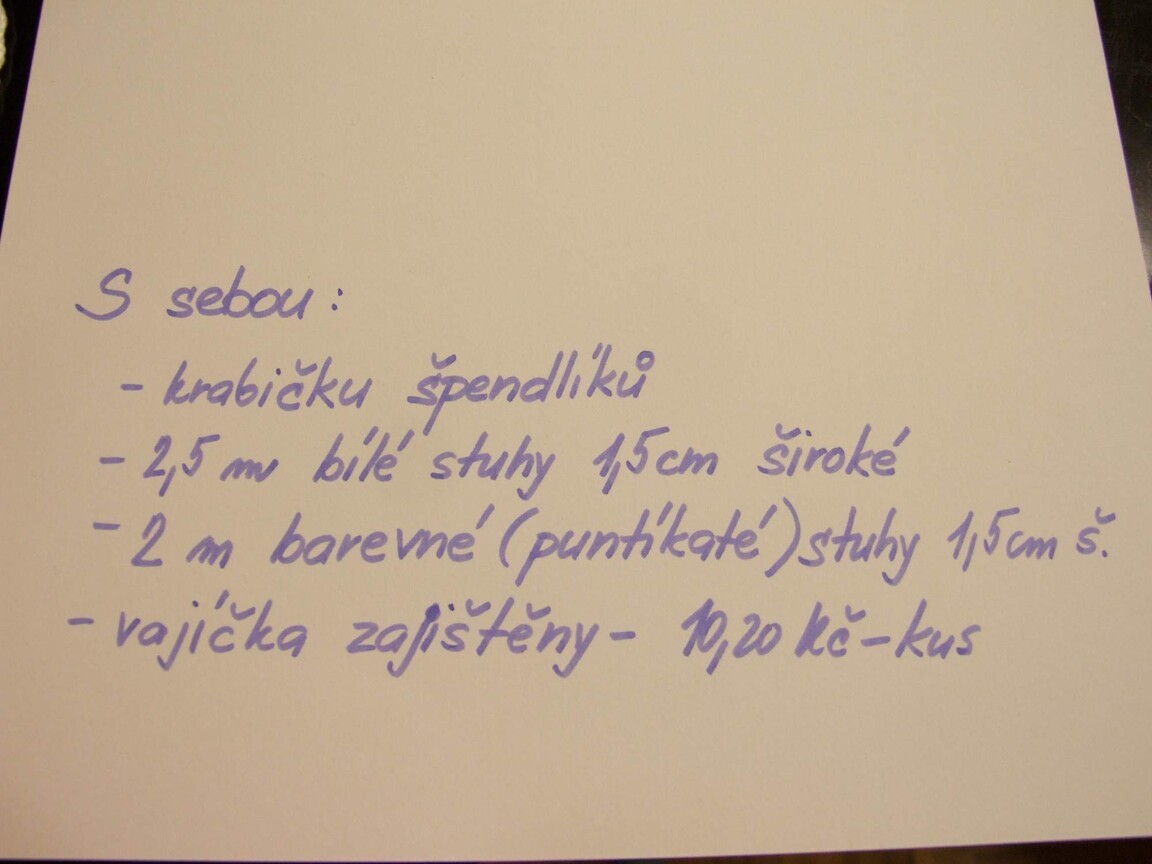 S sebou:
- krabičku špendlíků
- 2,5 m bílé stuhy 1,5cm široké
- 2 m barevné (puntíkaté) stuhy 1,5cm š.
- vajíčka zajištěny - 10,20 Kč - kus